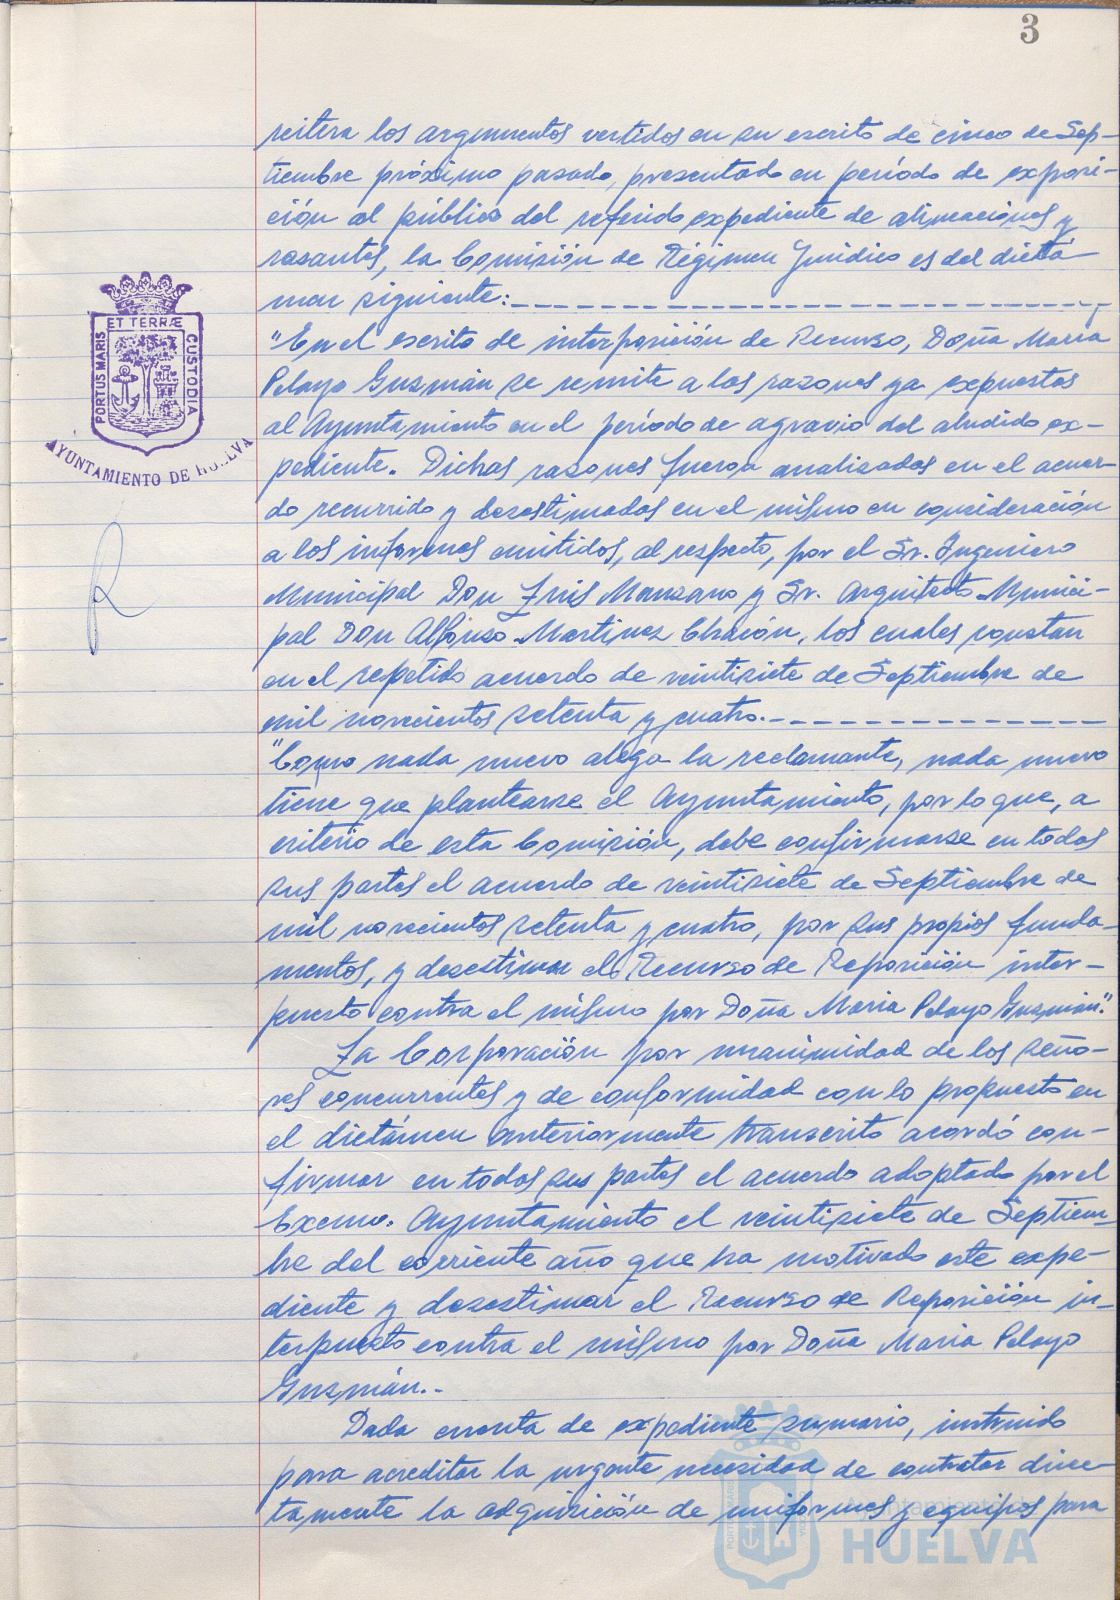 3
reitera los argumentos vertidos en su escrito de cinco de Sep-
tiembre próximo pasado, presentado en período de exposi-
ción al público del referido expediente de alineaciones y
rasantes, la Comisión de Régimen Jurídico es del dictá-
men siguiente:
"En el escrito de interposición de Recurso, Doña María
Pelayo Guzmán se remite a las razones ya expuestas
al Ayuntamiento en el período de agravio del aludido ex-
pediente. Dichas razones fueron analizadas en el acuer-
do recurrido y desestimadas en el mismo en consideración
a los informes emitidos, al respecto, por el Sr. Ingeniero
Municipal Don Luis Manzano y Sr. Arquitecto Munici-
pal Don Alfonso Martinez Chacón, los cuales constan
en el repetido acuerdo de veintisiete de Septiembre de
mil novecientos setenta y cuatro.
"Como nada nuevo alega la reclamante, nada nuevo
tiene que plantearse el Ayuntamiento, por lo que, a
criterio de esta Comisión, debe confirmarse en todas
sus partes el acuerdo de veintisiete de Septiembre de
mil novecientos setenta y cuatro, por sus propios funda-
mentos, y desestimar el Recurso de Reposición inter-
puesto contra el mismo por Doña Maria Pelayo Guzmán".
La Corporación por unanimidad de los seño-
res concurrentes y de conformidad con lo propuesto en
el dictámen anteriormente transcrito acordó con-
firmar en todas sus partes el acuerdo adoptado por el
Excmo. Ayuntamiento el veintisiete de Septiem-
bre del corriente año que ha motivado este expe-
diente y desestimar el Recurso de Reposición in-
terpuesto contra el mismo por Doña Maria Pelayo
Guzmán.-
Dada cuenta de expediente sumario, instruido
para acreditar la urgente necesidad de contratar direc-
tamente la adquisición de uniformes y equipos para
PORTUS MARIS ET TERRÆ CUSTODIA
AYUNTAMIENTO DE HUELVA
Ayuntamiento de
HUELVA